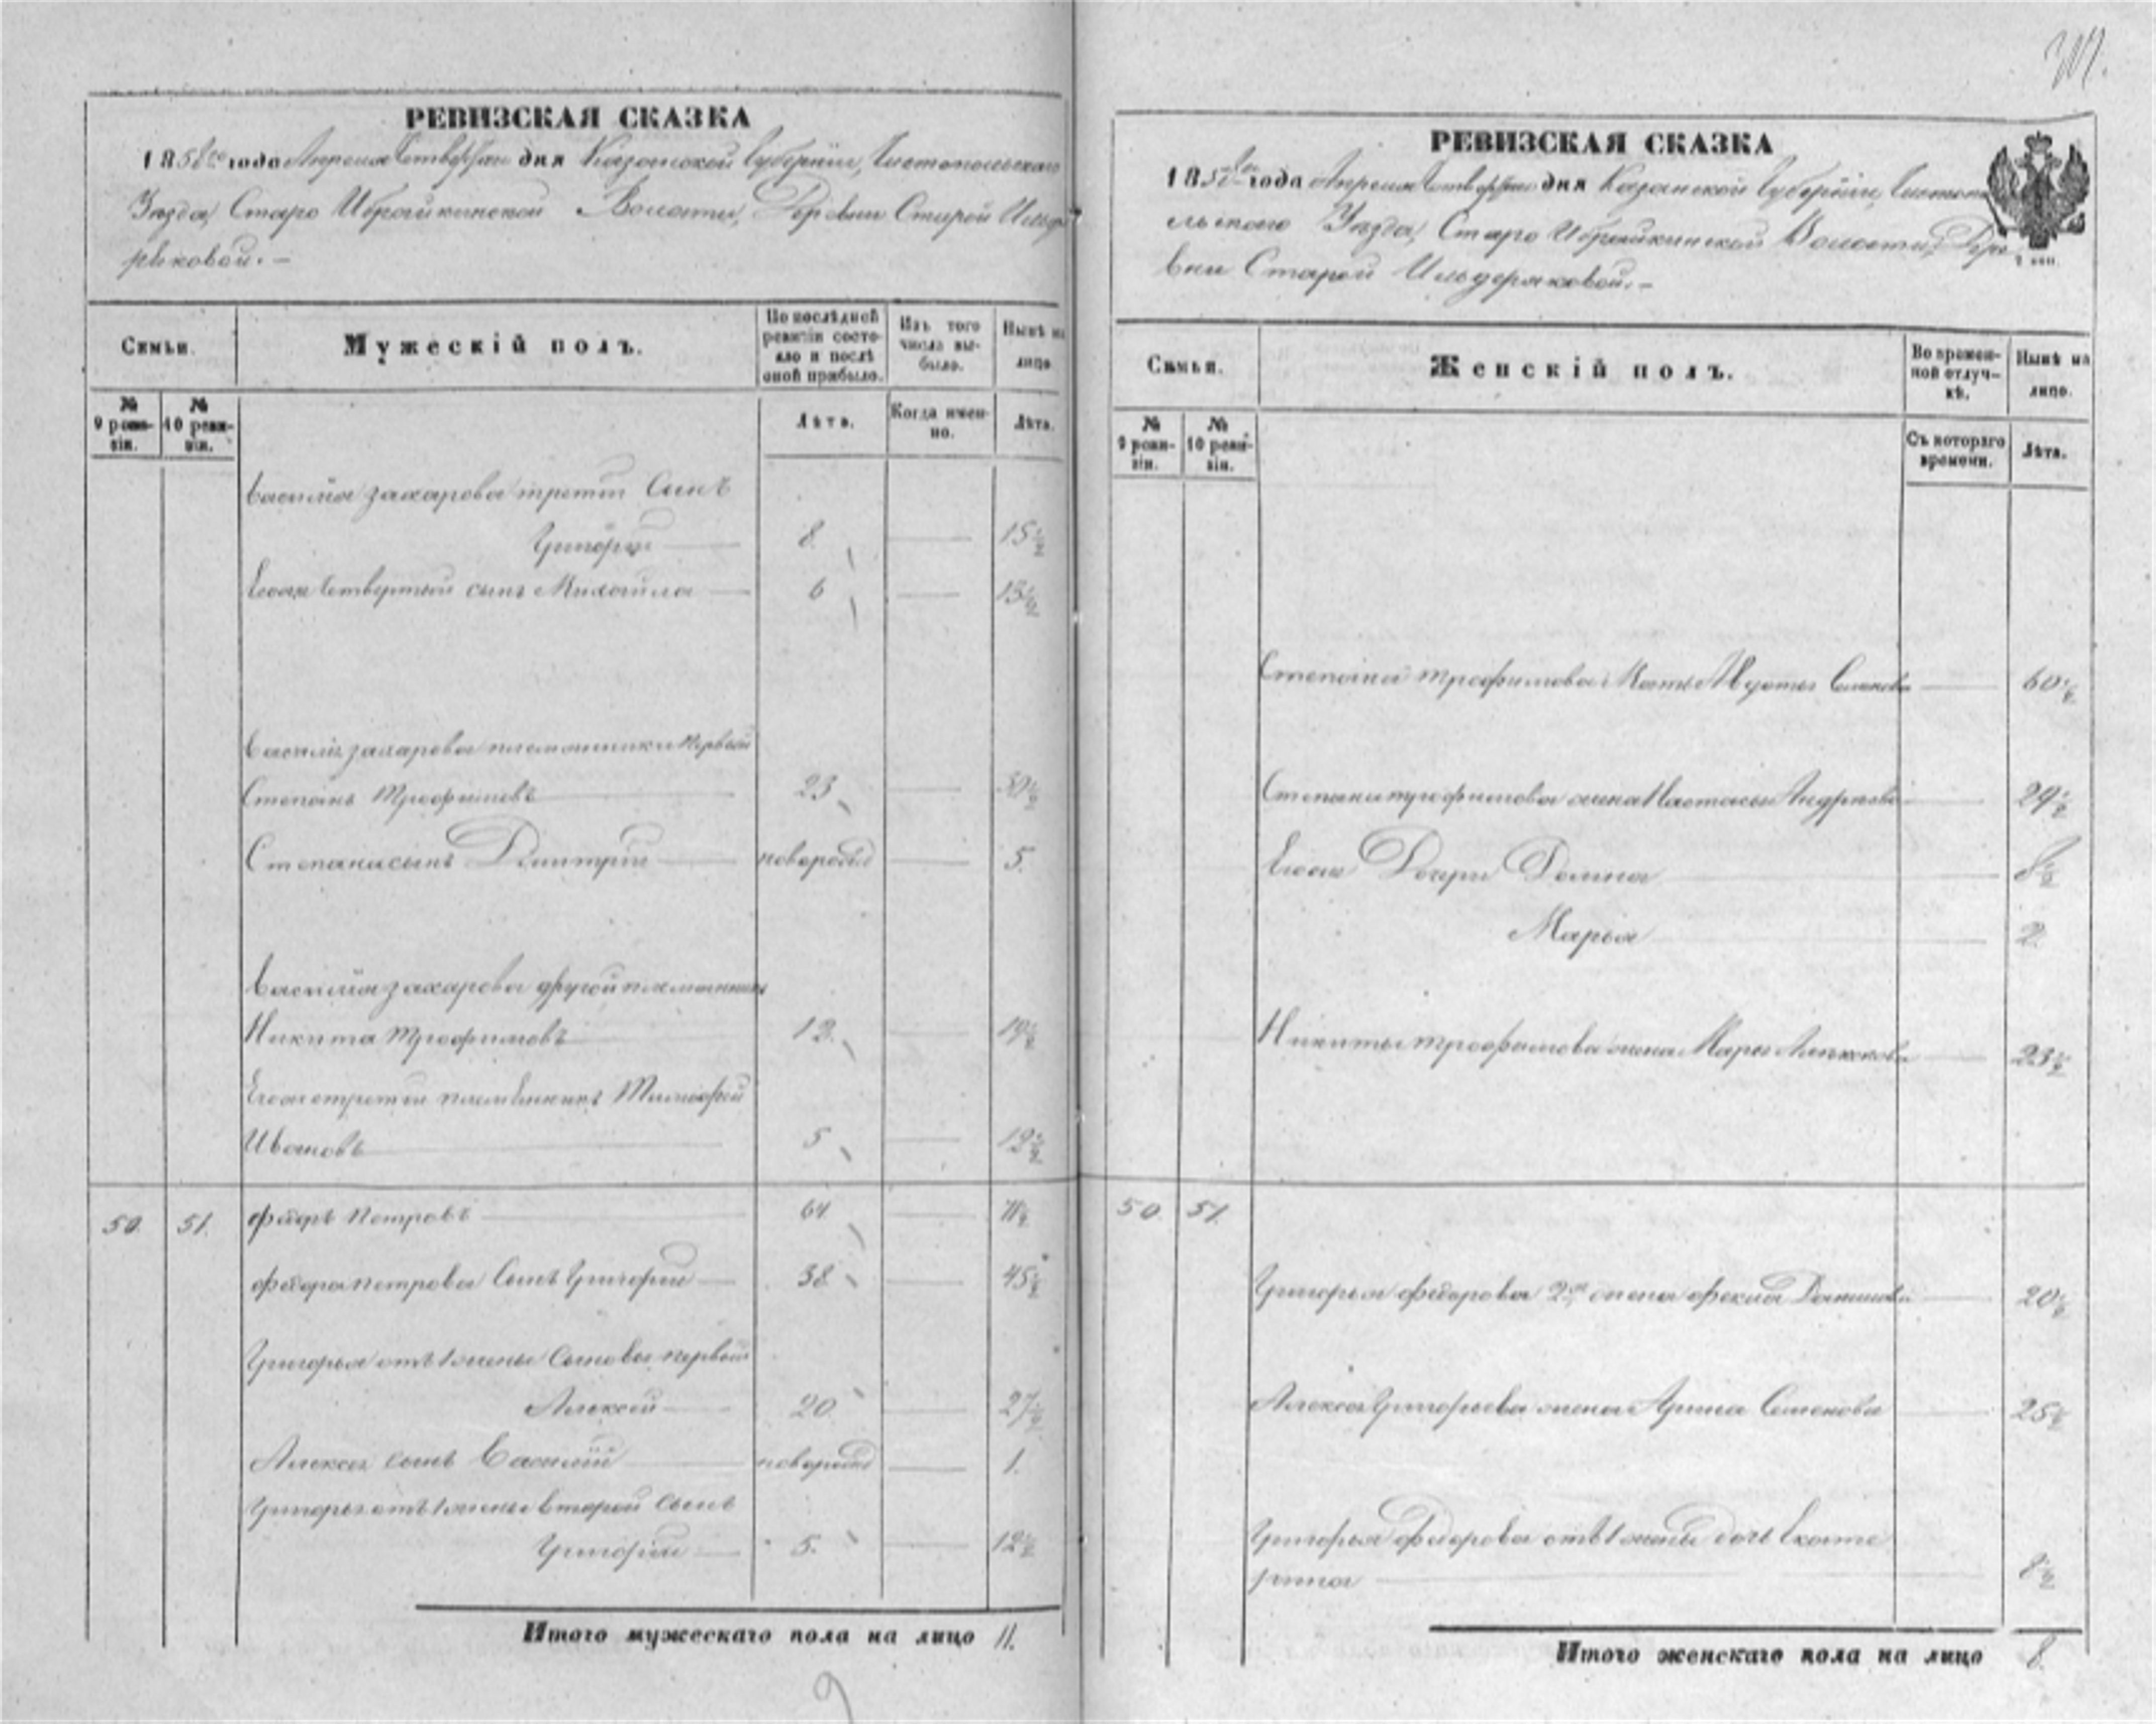 РЕВИЗСКАЯ СКАЗКА
1858го года Апреля дня Казанской Губерніи, Чистопольскаго
Уѣзда, Старо Ибрайкинской Волости, Деревни Старой Ильде
ряковой.
Семьи.
Мужескій полъ.
По послѣдней ревизіи состояло и послѣ оной прибыло.
Изъ того числа выбыло.
Нынѣ на лицо
№ 9 ревизіи.
№ 10 ревизіи.
Лѣта.
Когда именно.
Лѣта.
Василія Захарова третій сынъ
Григорій 8. 15½
Его же четвертый сынъ Михайла 6 13½
Василія Захарова племянники первый
Степанъ Трофимовъ 23 30½
Степана сынъ Дмитрій новорожд 5.
Василія Захарова другой племянникъ
Никита Трофимовъ 12. 19½
Его же третій племянникъ Тимофей
Ивановъ 5 12½
50. 51. Федоръ Петровъ 64 71½
Федора Петрова сынъ Григорій 38. 45½
Григорья отъ 1 жены сыновья первый
Алексей 20. 27½
Алексея сынъ Василій новорожд 1.
Григорья отъ 1 жены второй сынъ
Григорій 5. 12½
Итого мужескаго пола на лицо 11.
РЕВИЗСКАЯ СКАЗКА
1858го года Апреля дня Казанской Губерніи, Чистопо
льскаго Уѣзда, Старо Ибрайкинской Волости, Дере
вни Старой Ильдеряковой.
Семьи.
Женскій полъ.
Во временной отлучкѣ.
Нынѣ на лицо.
№ 9 ревизіи.
№ 10 ревизіи.
Съ котораго времени.
Лѣта.
Степана Трофимова Мать 60½
Степана Трофимова жена Настасья Андреева 29½
Его же Дочери 8½
Марья 2.
Никиты Трофимова жена 23½
50. 51.
Григорья Федорова 2я жена 20½
Алексея Григорьева жена Арина Семенова 25½
Григорья Федорова отъ 1 жены дочь Екате
рина 8½
Итого женскаго пола на лицо 8.